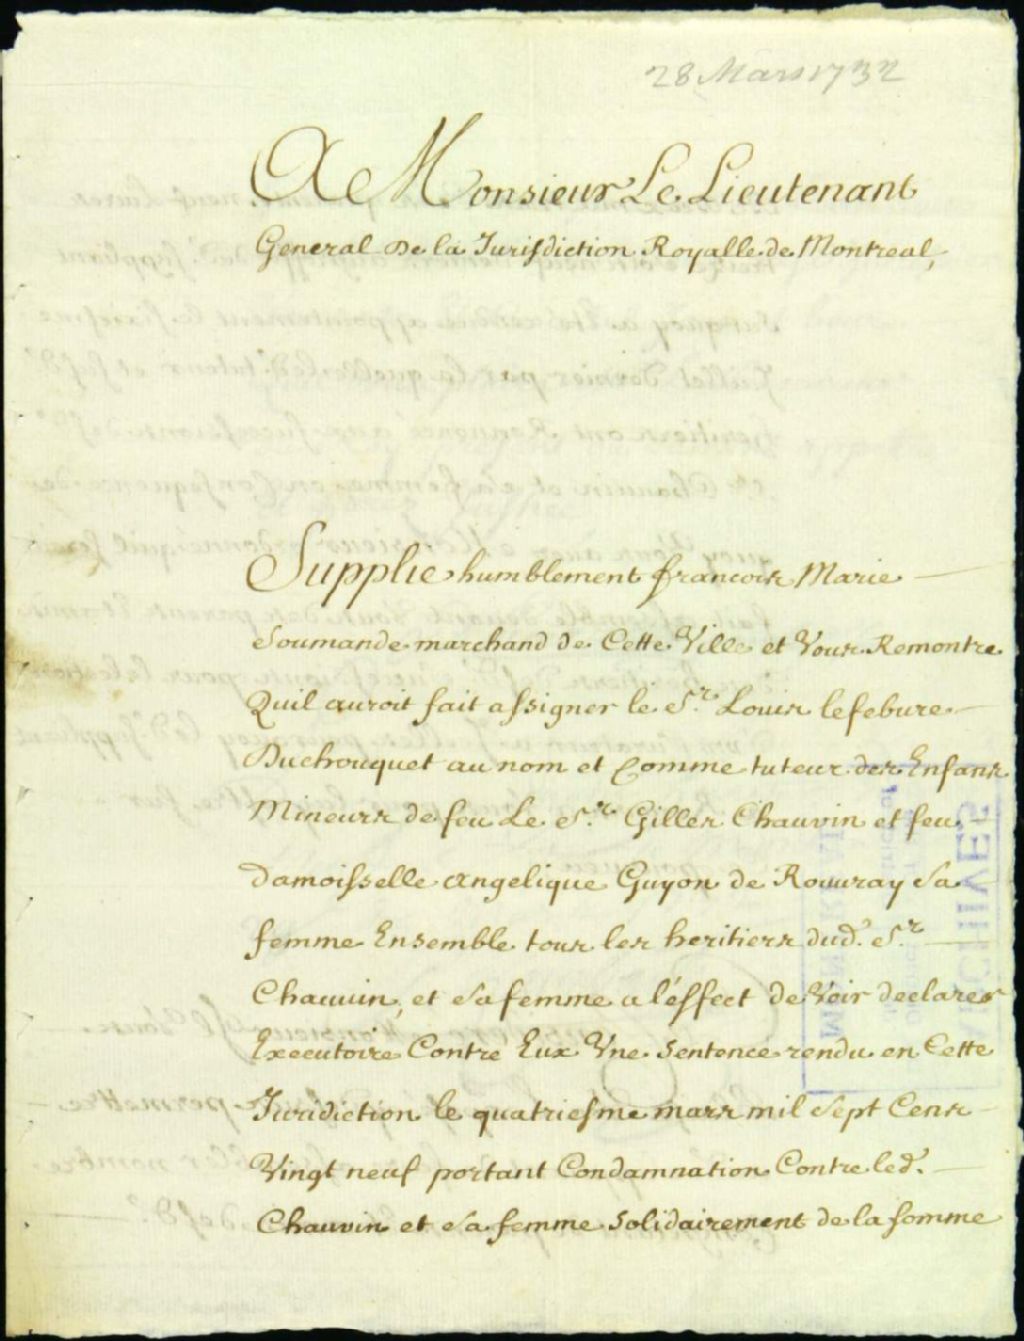 28 Mars 1732
A Monsieur Le Lieutenant
General De la Jurisdiction Royalle de Montreal,
Supplie humblement francois Marie
Soumande marchand de Cette Ville et Vous Remontre
Quil auroit fait assigner le Sr. Louis lefebure
Duchouquet au nom et Comme tuteur des Enfans
Mineurs de feu Le Sr. Gilles Chauvin et feu
Damoisselle Angelique Guyon de Rouuray Sa
femme Ensemble tous les heritiers dud. Sr.
Chauuin, et Sa femme a l'éffect de Voir declarer
Executoire Contre Eux Vne Sentence rendu en Cette
Juridiction le quatriesme mars mil Sept Cens
Vingt neuf portant Condamnation Contre led.
Chauvin et Sa femme Solidairement de la somme
MONTREAL
ARCHIVES